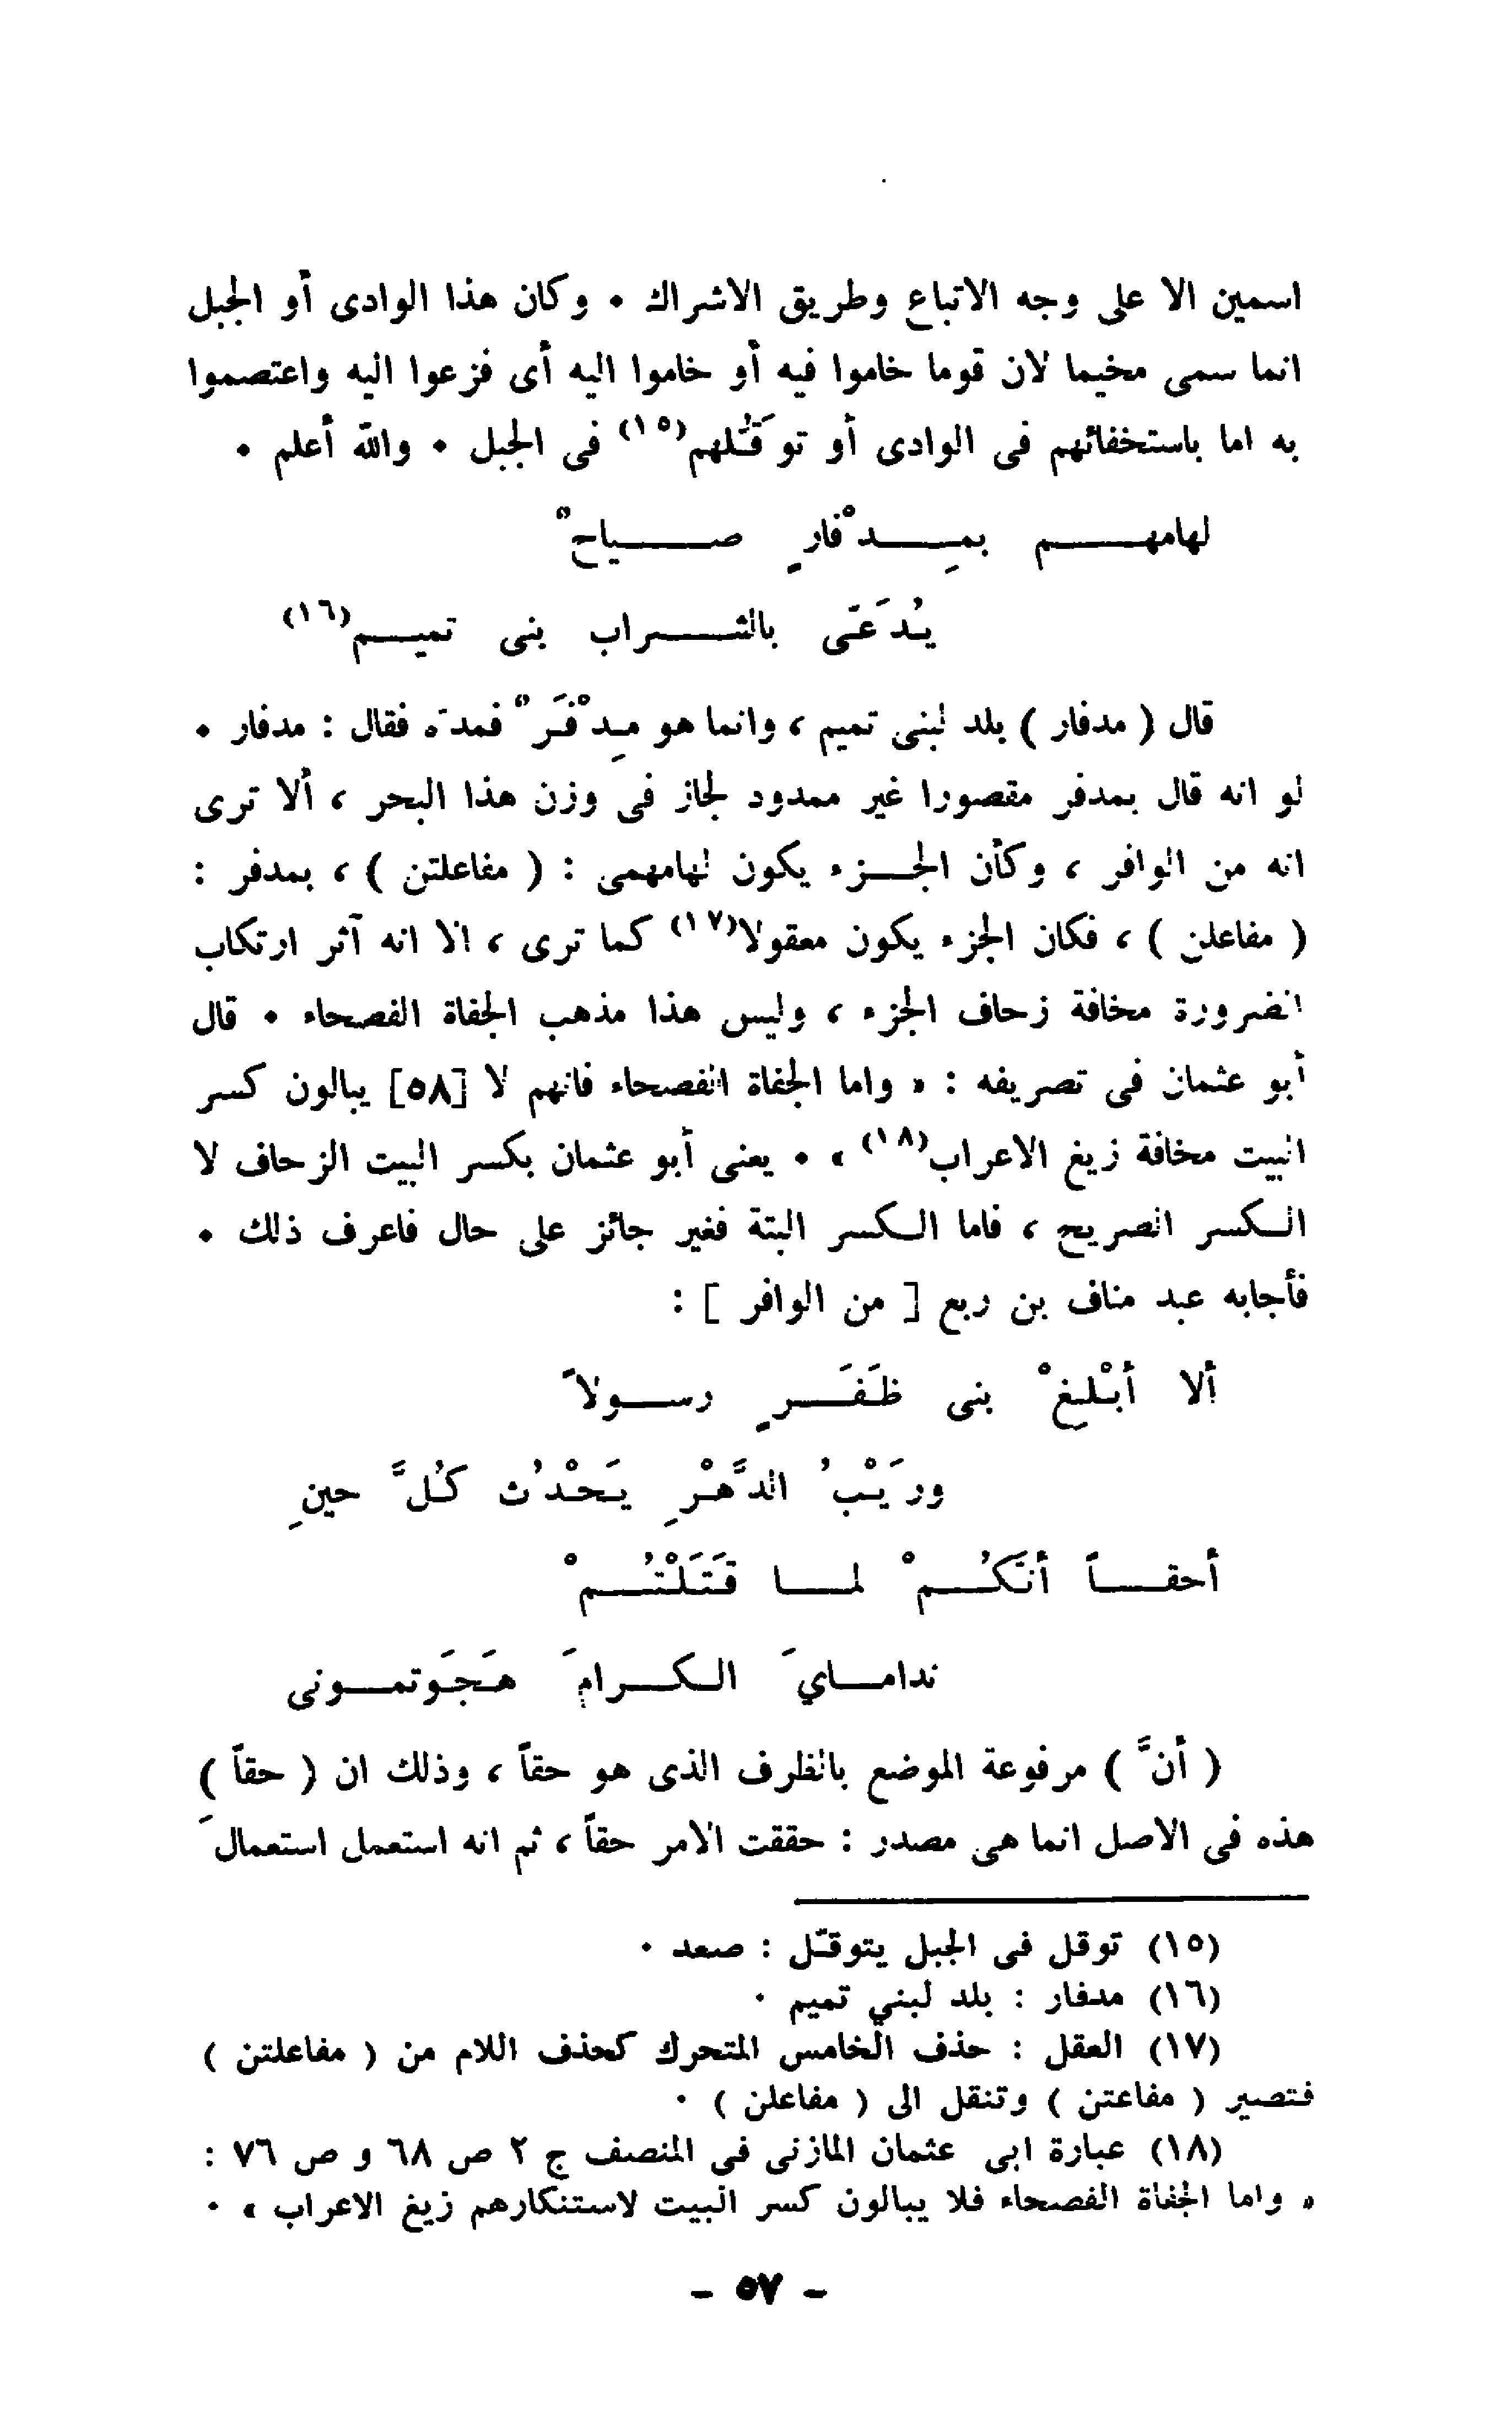 اسمين الا على وجه الاتباع وطريق الاشراك ٠ وكان هذا الوادى أو الجبل
انما سمى مخيما لان قوما خاموا فيه أو خاموا اليه أى فزعوا اليه واعتصموا
به اما باستخفائهم فى الوادى أو توَقُّلهم(١٥) فى الجبل ٠ والله أعلم ٠
لهامهم بمِدْفارٍ صياحٌ
يُدَعّى بالشراب بنى تميم(١٦)
قال ( مدفار ) بلد لبنى تميم ، وانما هو مِدْفَرٌ فمدّه فقال : مدفار ٠
لو انه قال بمدفر مقصورا غير ممدود لجاز فى وزن هذا البحر ، ألا ترى
انه من الوافر ، وكأن الجزء يكون لهامهمى : ( مفاعلتن ) ، بمدفر :
( مفاعلن ) ، فكان الجزء يكون معقولا(١٧) كما ترى ، الا انه آثر ارتكاب
الضرورة مخافة زحاف الجزء ، وليس هذا مذهب الجفاة الفصحاء ٠ قال
أبو عثمان فى تصريفه : « واما الجفاة الفصحاء فانهم لا [٥٨] يبالون كسر
البيت مخافة زيغ الاعراب(١٨) » ٠ يعنى أبو عثمان بكسر البيت الزحاف لا
الكسر الصريح ، فاما الكسر البتة فغير جائز على حال فاعرف ذلك ٠
فأجابه عبد مناف بن ربع [ من الوافر ] :
ألا أبْلِغْ بنى ظَفَرٍ رسولاً
ورَيْبُ الدَّهْرِ يَحْدُث كُلَّ حينِ
أحقاً أنّكُمْ لما قَتَلْتُمْ
ندامايَ الكرامَ هَجَوتمونى
( أنَّ ) مرفوعة الموضع بالظرف الذى هو حقاً ، وذلك ان ( حقاً )
هذه فى الاصل انما هى مصدر : حققت الامر حقاً ، ثم انه استعمل استعمالَ
(١٥) توقل فى الجبل يتوقّل : صعد ٠
(١٦) مدفار : بلد لبني تميم ٠
(١٧) العقل : حذف الخامس المتحرك كحذف اللام من ( مفاعلتن )
فتصير ( مفاعتن ) وتنقل الى ( مفاعلن ) ٠
(١٨) عبارة ابى عثمان المازنى فى المنصف ج ٢ ص ٦٨ و ص ٧٦ :
« واما الجفاة الفصحاء فلا يبالون كسر البيت لاستنكارهم زيغ الاعراب » ٠
- ٥٧ -